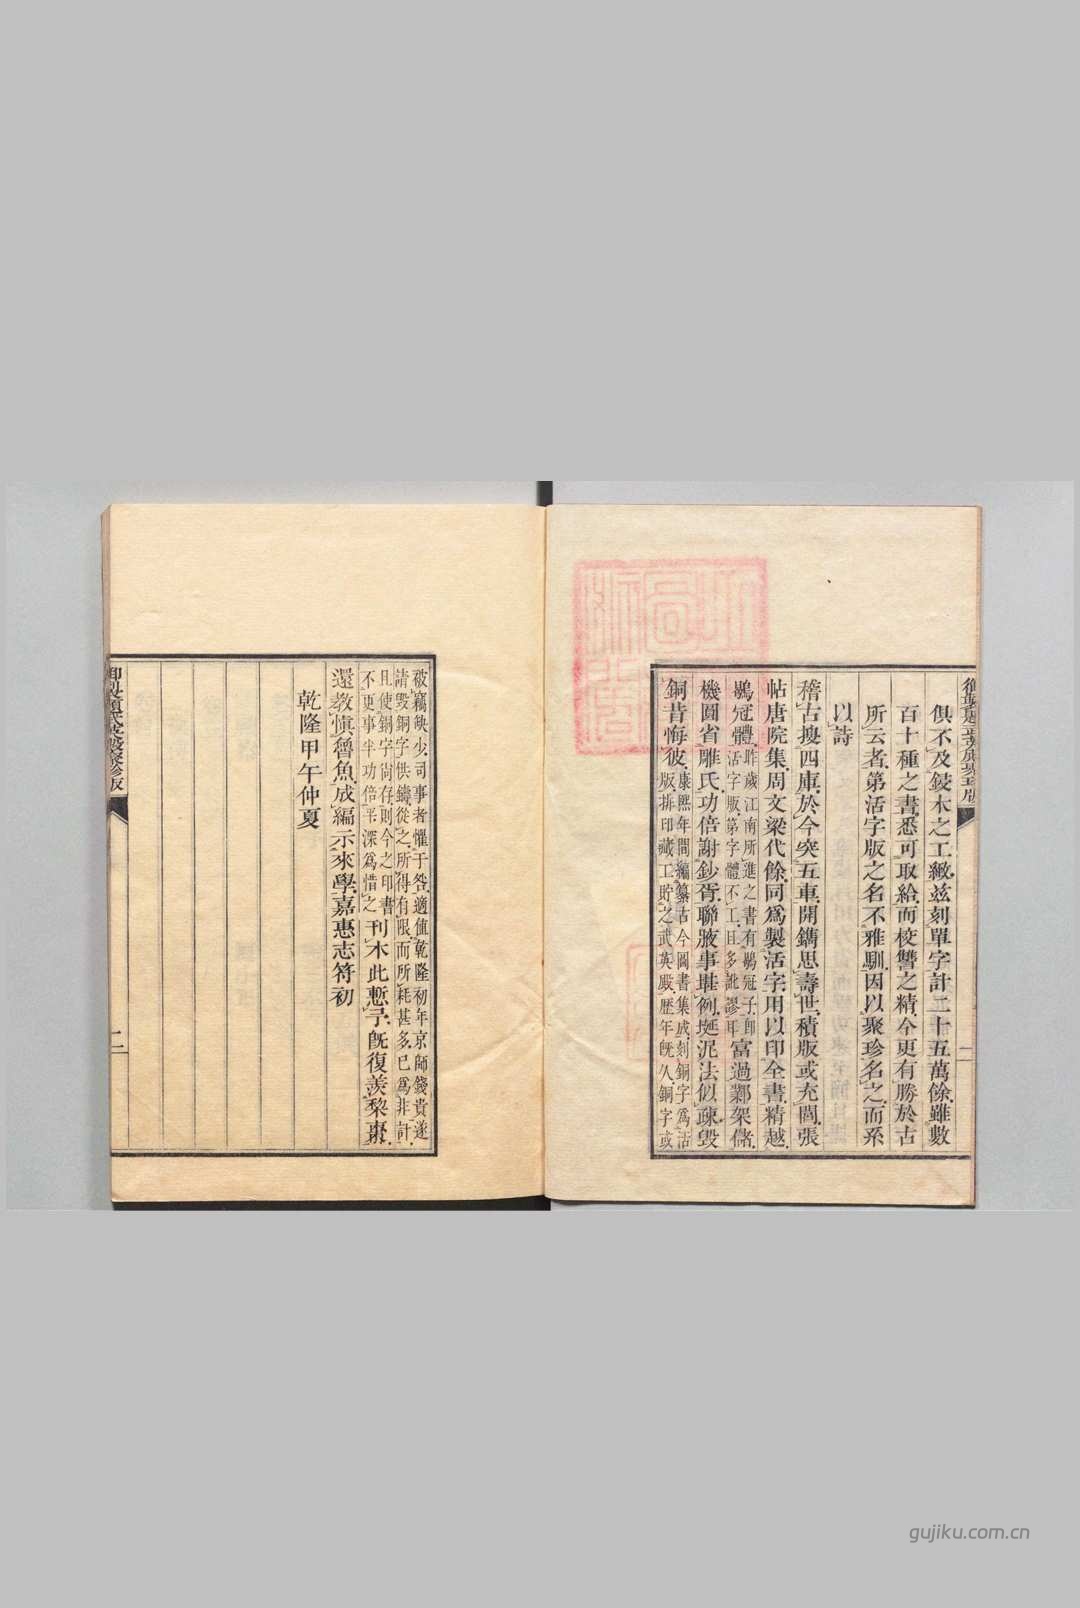 俱不及鋟木之工緻茲刻單字計二十五萬餘雖數
百十種之書悉可取給而校讐之精今更有勝於古
所云者第活字版之名不雅馴因以聚珍名之而系
以詩
稽古搜四庫於今突五車開鐫思壽世積版或充閭張
帖唐院集周文梁代餘同爲製活字用以印全書精越
鶡冠體昨歲江南所進之書有鶡冠子即
活字版第字體不工且多訛謬耳富過鄴架儲
機圓省雕氏功倍謝鈔胥聯腋事堪例埏泥法似疎毀
銅昔悔彼康熙年間編纂古今圖書集成刻銅字爲活
版排印藏工貯之武英殿歷年旣久銅字或
破竊缺少司事者懼干咎適值乾隆初年京師錢貴遂
請毀銅字供鑄從之所得有限而所耗甚多已爲非計
且使銅字尚存則今之印書
不更事半功倍乎深爲惜之刊木此慙予旣復羨棃棗
還教愼魯魚成編示來學嘉惠志符初
乾隆甲午仲夏
二
gujiku.com.cn